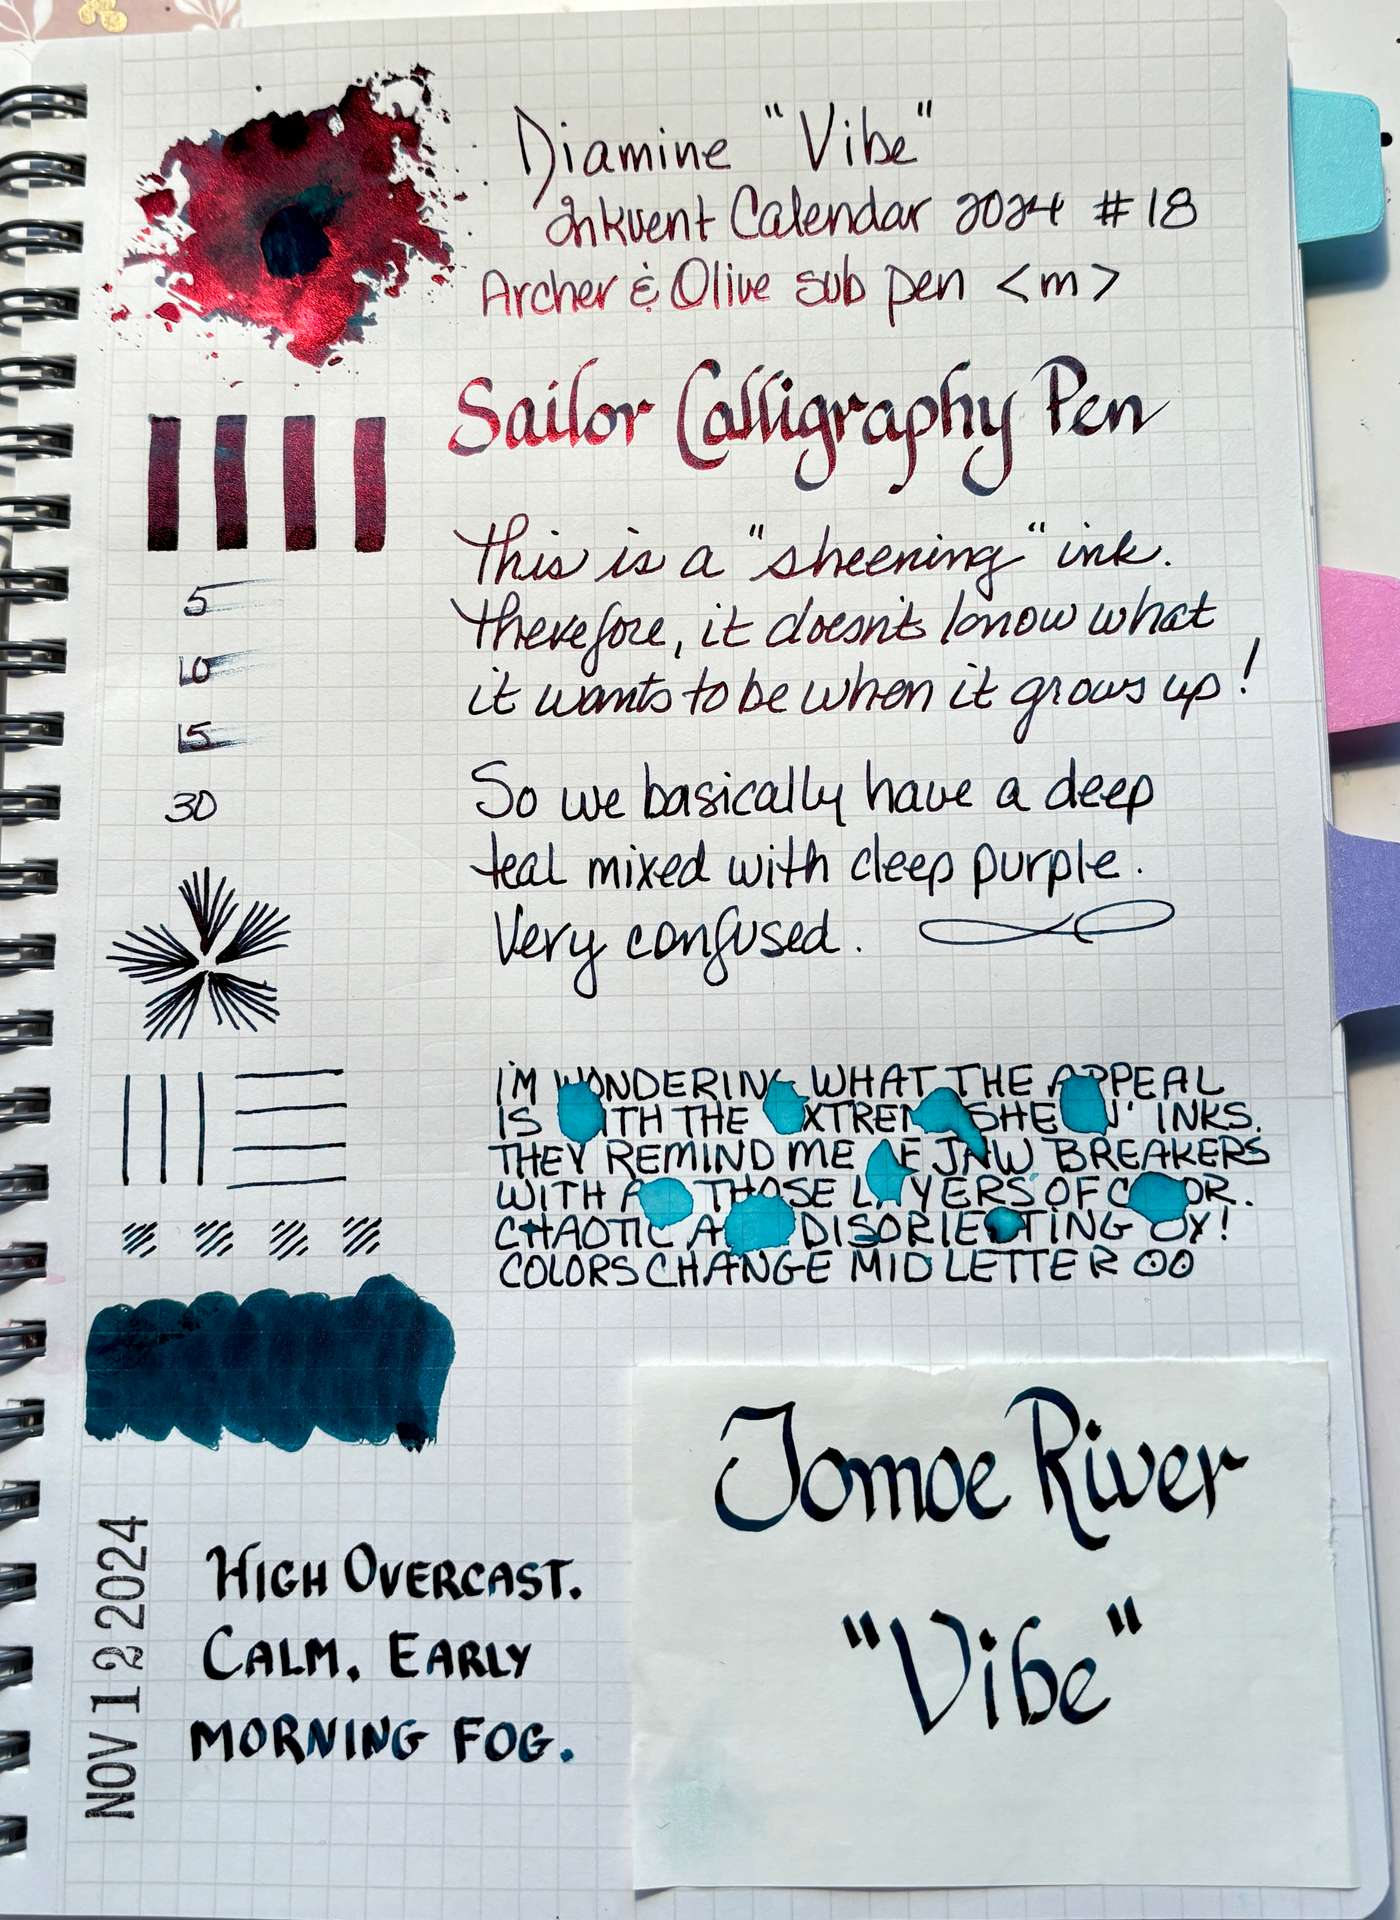 Diamine "Vibe"
Inkvent Calendar 2024 #18
Archer & Olive sub pen <m>
Sailor Calligraphy Pen
This is a "sheening" ink.
Therefore, it doesn't know what
it wants to be when it grows up!
5
10
15
30
So we basically have a deep
teal mixed with deep purple.
Very confused.
I'M WONDERING WHAT THE APPEAL
IS WITH THE EXTREME SHEEN' INKS.
THEY REMIND ME OF JAW BREAKERS
WITH ALL THOSE LAYERS OF COLOR.
CHAOTIC AND DISORIENTING
COLORS CHANGE MID LETTER
NOV 12 2024
HIGH OVERCAST.
CALM. EARLY
MORNING FOG.
Tomoe River
"Vibe"